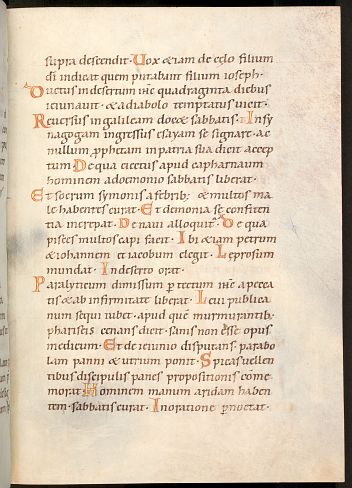 supra descendit. Vox & iam de cęlo filium
dī indicat quem putabant filium ioseph.
Ductus in desertum ihc quadraginta diebus
ieiunavit. & a diabolo temptatus vicit.
Reversus in galileam doc& sabbatis. In sy
nagogam ingressus esayam se signare. ac
nullum pphetam in patria sua dicit accep
tum. De qua eiectus apud capharnaum
hominem a demonio sabbatis liberat.
Et socrum symonis a febrib; & multos ma
le habentes curat. Et demonia se confiten
tia increpat. De navi alloquit. De qua
pisces multos capi facit. Ibi & iam petrum
& iohannem et iacobum elegit. Leprosum
mundat. In deserto orat.
Paralyticum dimissum p tectum ihc a pecca
tis & ab infirmitate liberat. Levi publica
num sequi iubet. apud que murmurantib;
phariseis cenans dicit. sanis non ēsse opus
medicum. Et de ieiunio disputans. parabo
lam panni & utrium ponit. Spicas vellen
tibus discipulis panes propositionis cōme
morat. Hominem manum aridam haben
tem. sabbatis curat. In oratione pnoctat.